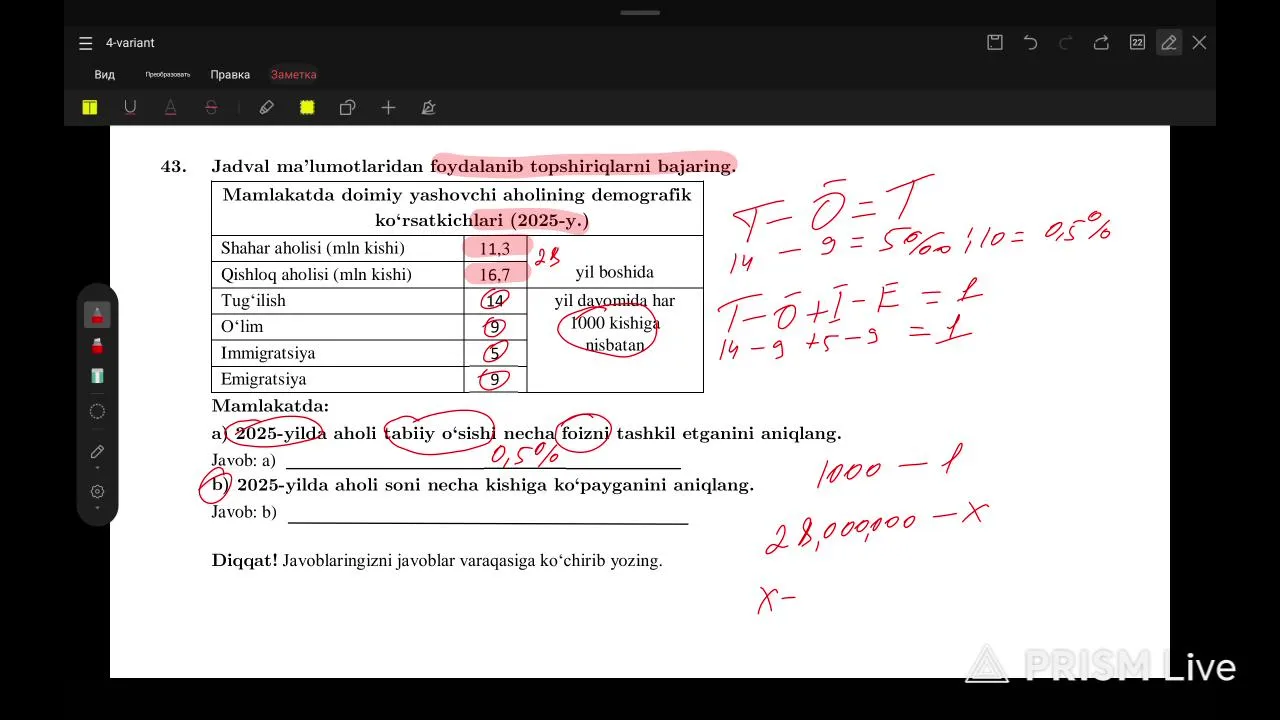 4-variant
22
Вид Преобразовать Правка Заметка
43. Jadval ma'lumotlaridan foydalanib topshiriqlarni bajaring.
Mamlakatda doimiy yashovchi aholining demografik
ko'rsatkichlari (2025-y.)
Shahar aholisi (mln kishi) 11,3
28
Qishloq aholisi (mln kishi) 16,7 yil boshida
Tug'ilish 14 yil davomida har
O'lim 9 1000 kishiga
nisbatan
Immigratsiya 5
Emigratsiya 9
Mamlakatda:
a) 2025-yilda aholi tabiiy o'sishi necha foizni tashkil etganini aniqlang.
Javob: a) 0,5%
b) 2025-yilda aholi soni necha kishiga ko'payganini aniqlang.
Javob: b)
Diqqat! Javoblaringizni javoblar varaqasiga ko'chirib yozing.
T - Ō = T
14 - 9 = 5‰ : 10 = 0,5%
T - Ō + I - E = 1
14 - 9 + 5 - 9 = 1
1000 - 1
28,000,000 - x
x -
PRISM Live